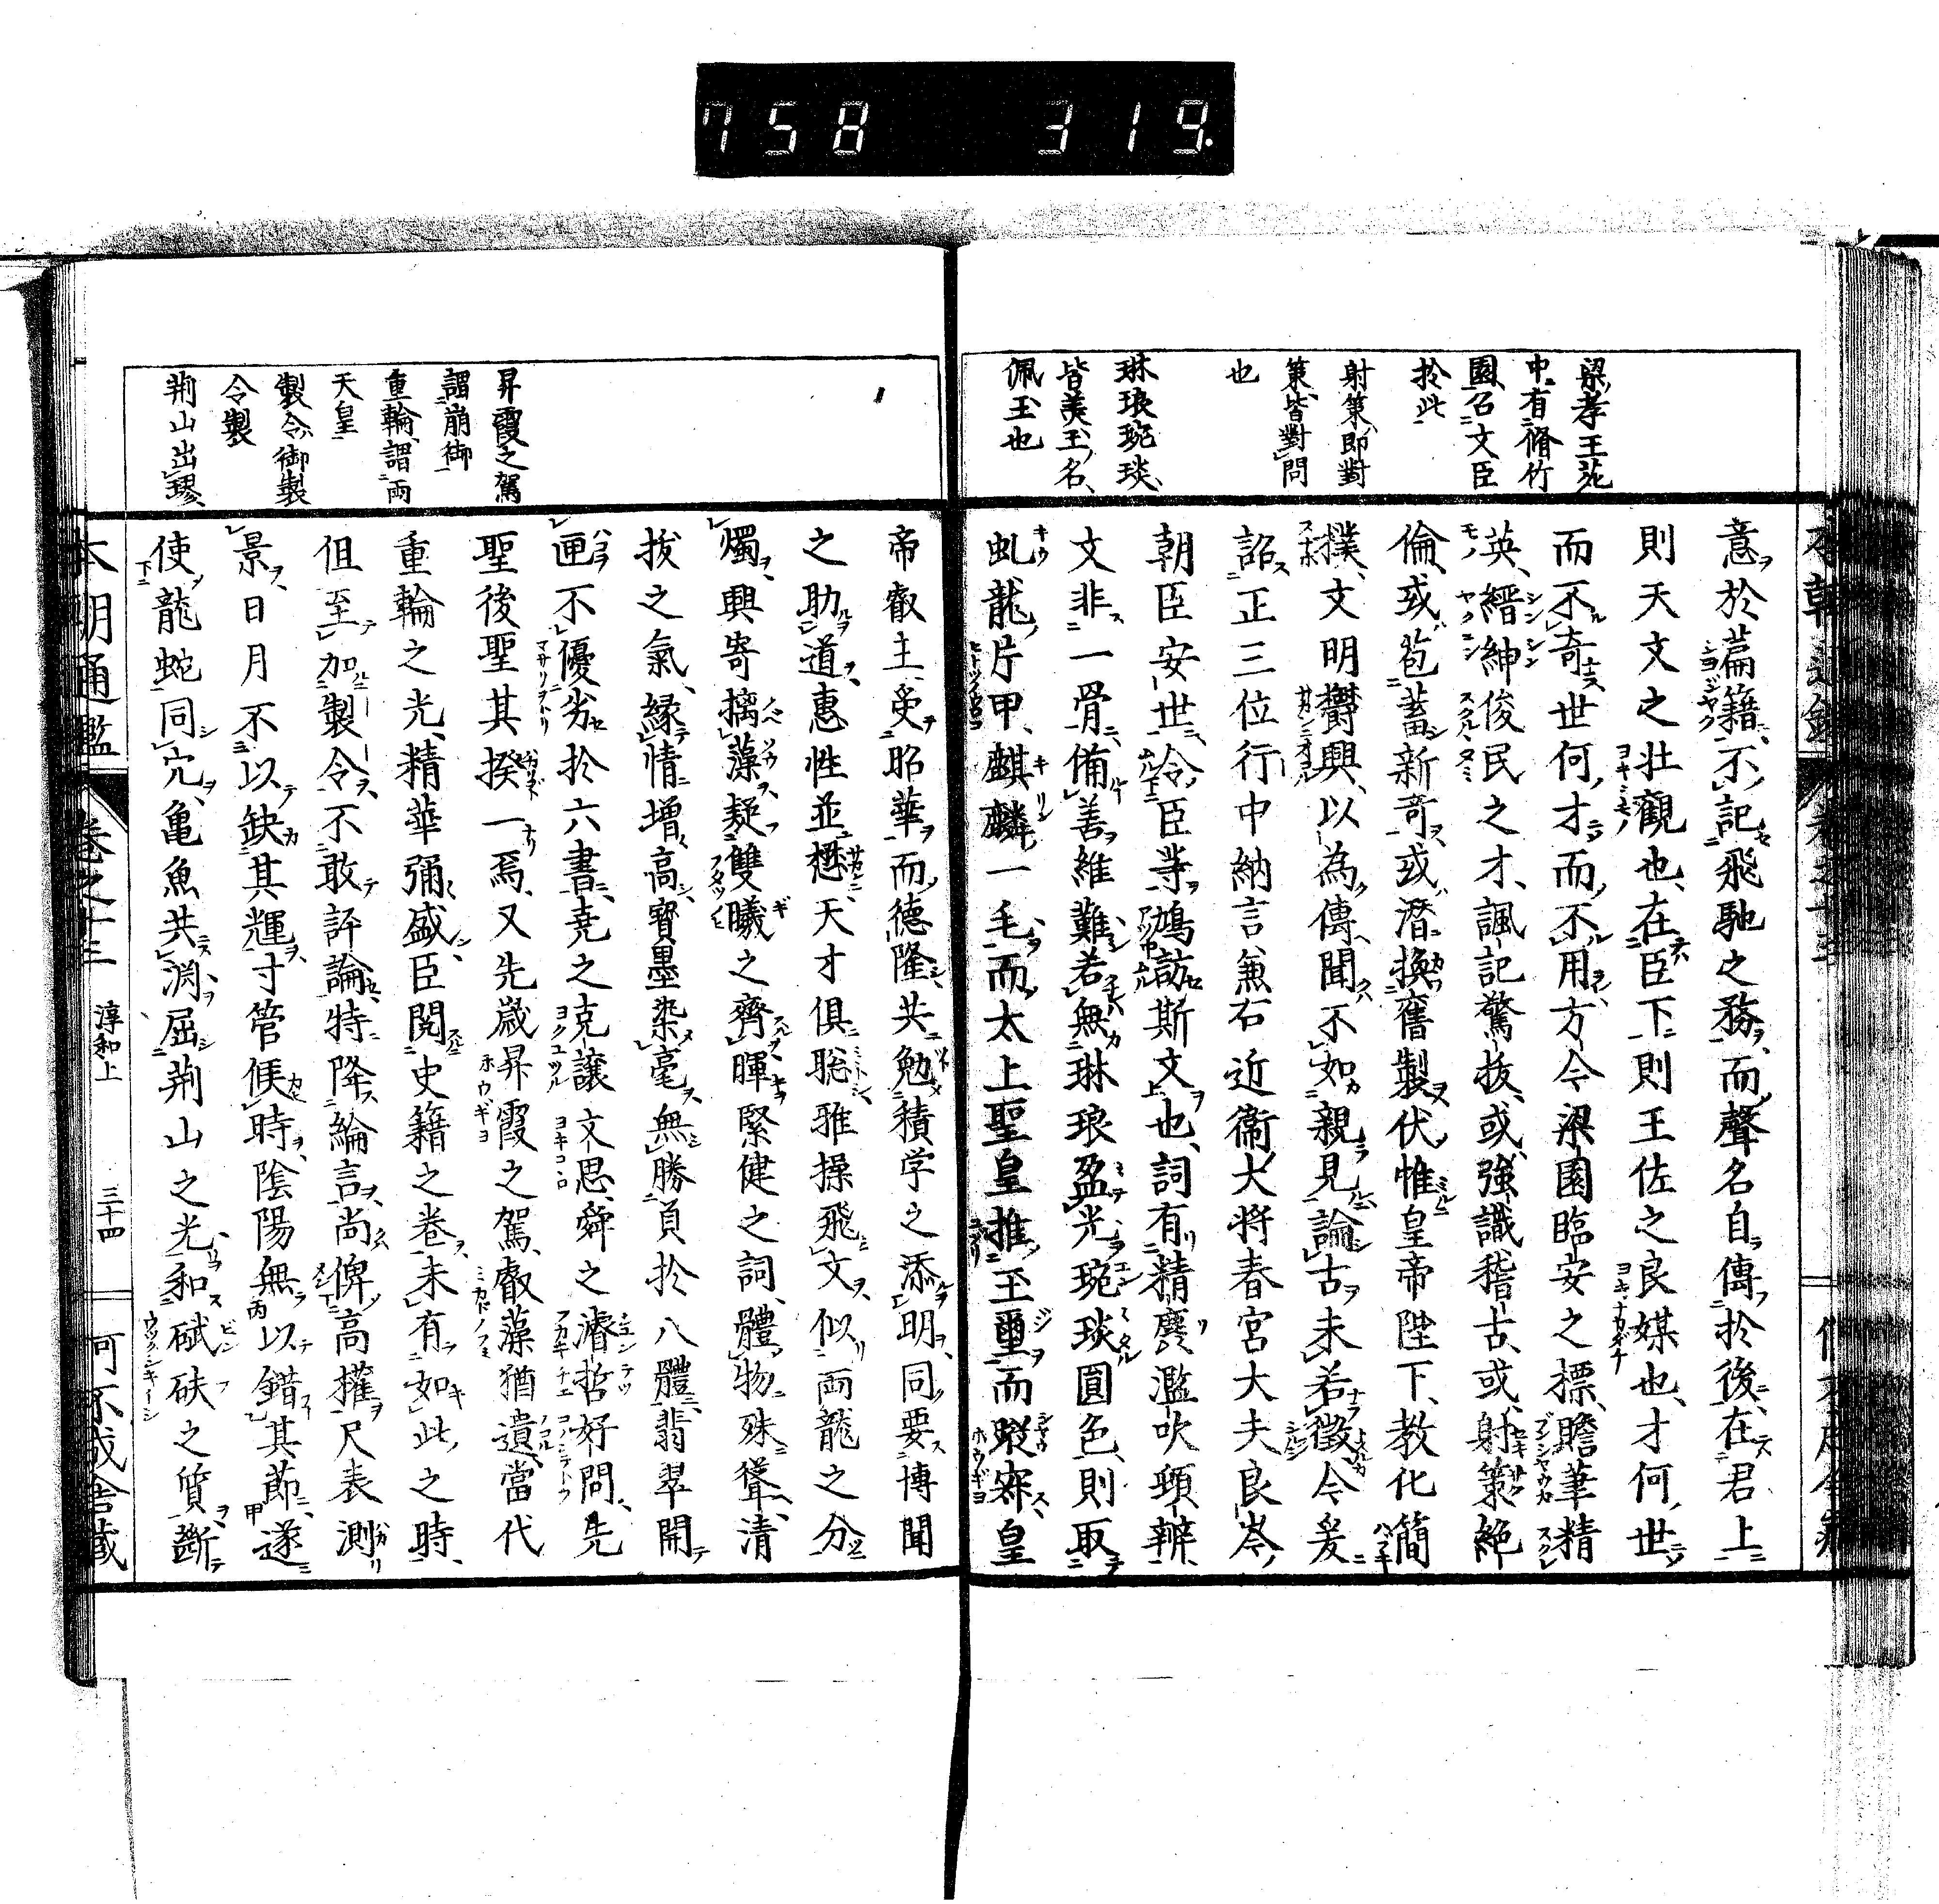 758 319.
梁孝王苑
中有脩竹
園召文臣
於此
射策即對
策皆對問
也
琳琅琬琰
皆美玉名
佩玉也
意於篇籍不記飛馳之務而聲名自傳於後在君上
則天文之壮觀也在臣下則王佐之良媒也才何世
而不奇世何才而不用方今梁園臨安之標瞻筆精
英縉紳俊民之才諷記驚抜或強識稽古或射策絶
倫或苞蓄新奇或潛換舊製伏惟皇帝陛下教化簡
撲文明欝興以為傳聞不如親見論古未若徵今爰
詔正三位行中納言兼右近衞大将春宮大夫良岑
朝臣安世令臣等鳩訪斯文也詞有精麁濫吹頌辨
文非一骨備善維難若無琳琅盈光琬琰圓色則取
虬龍片甲麒麟一毛而太上聖皇推至璽而蹤寀皇
昇霞之駕
謂崩御
重輪謂両
天皇
製令御製
令製
荆山出璆
帝叡主受昭華而德隆共勉積学之添明同要博聞
之助道惠性並懋天才俱聡雅操飛文似両龍之分
燭興寄摛藻疑雙曦之齊暉緊健之詞體物殊聳清
抜之氣緣情增高寳墨染毫無勝負於八體翡翠開
匣不優劣於六書尭之克讓文思舜之濬哲好問先
聖後聖其揆一焉又先歳昇霞之駕叡藻猶遺當代
重輪之光精華彌盛臣閱史籍之卷未有如此之時
但至加製令不敢評論特降綸言尚俾高擢尺表測
景日月不以缺其輝寸管候時陰陽無以錯其節遂
使龍蛇同宂亀魚共淵屈荆山之光和碔砆之質斷
本朝通鑑
卷之十三
淳和上
三十四